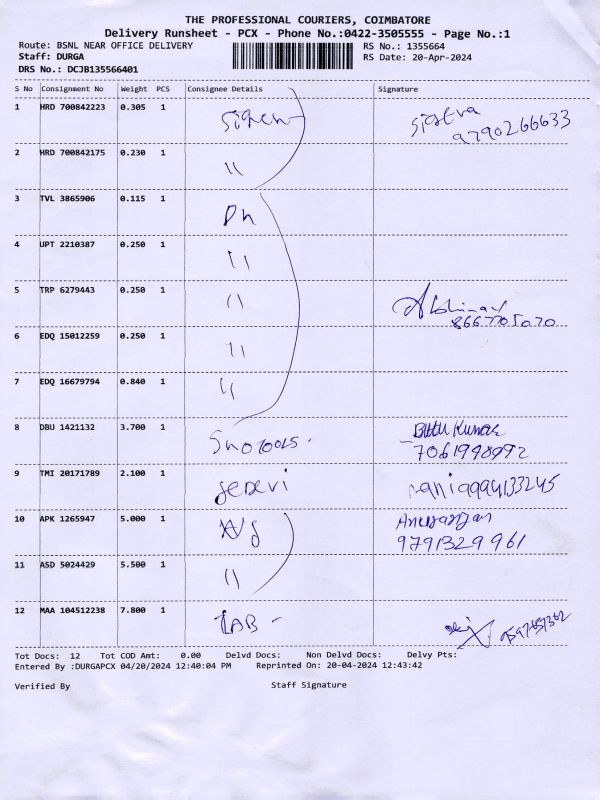 THE PROFESSIONAL COURIERS, COIMBATORE
Delivery Runsheet - PCX - Phone No.:0422-3505555 - Page No.:1
Route: BSNL NEAR OFFICE DELIVERY RS No.: 1355664
Staff: DURGA RS Date: 20-Apr-2024
DRS No.: DCJB135566401
S No Consignment No Weight PCS Consignee Details Signature
1 HRD 700842223 0.305 1
9790266633
2 HRD 700842175 0.230 1 "
3 TVL 3865906 0.115 1
4 UPT 2210387 0.250 1 "
5 TRP 6279443 0.250 1 "
8667705070
6 EDQ 15012259 0.250 1 "
7 EDQ 16679794 0.840 1 "
8 DBU 1421132 3.700 1 Kumar
7061998992
9 TMI 20171789 2.100 1
10 APK 1265947 5.000 1
9791329961
11 ASD 5024429 5.500 1 "
12 MAA 104512238 7.800 1
Tot Docs: 12 Tot COD Amt: 0.00 Delvd Docs: Non Delvd Docs: Delvy Pts:
Entered By :DURGAPCX 04/20/2024 12:40:04 PM Reprinted On: 20-04-2024 12:43:42
Verified By Staff Signature